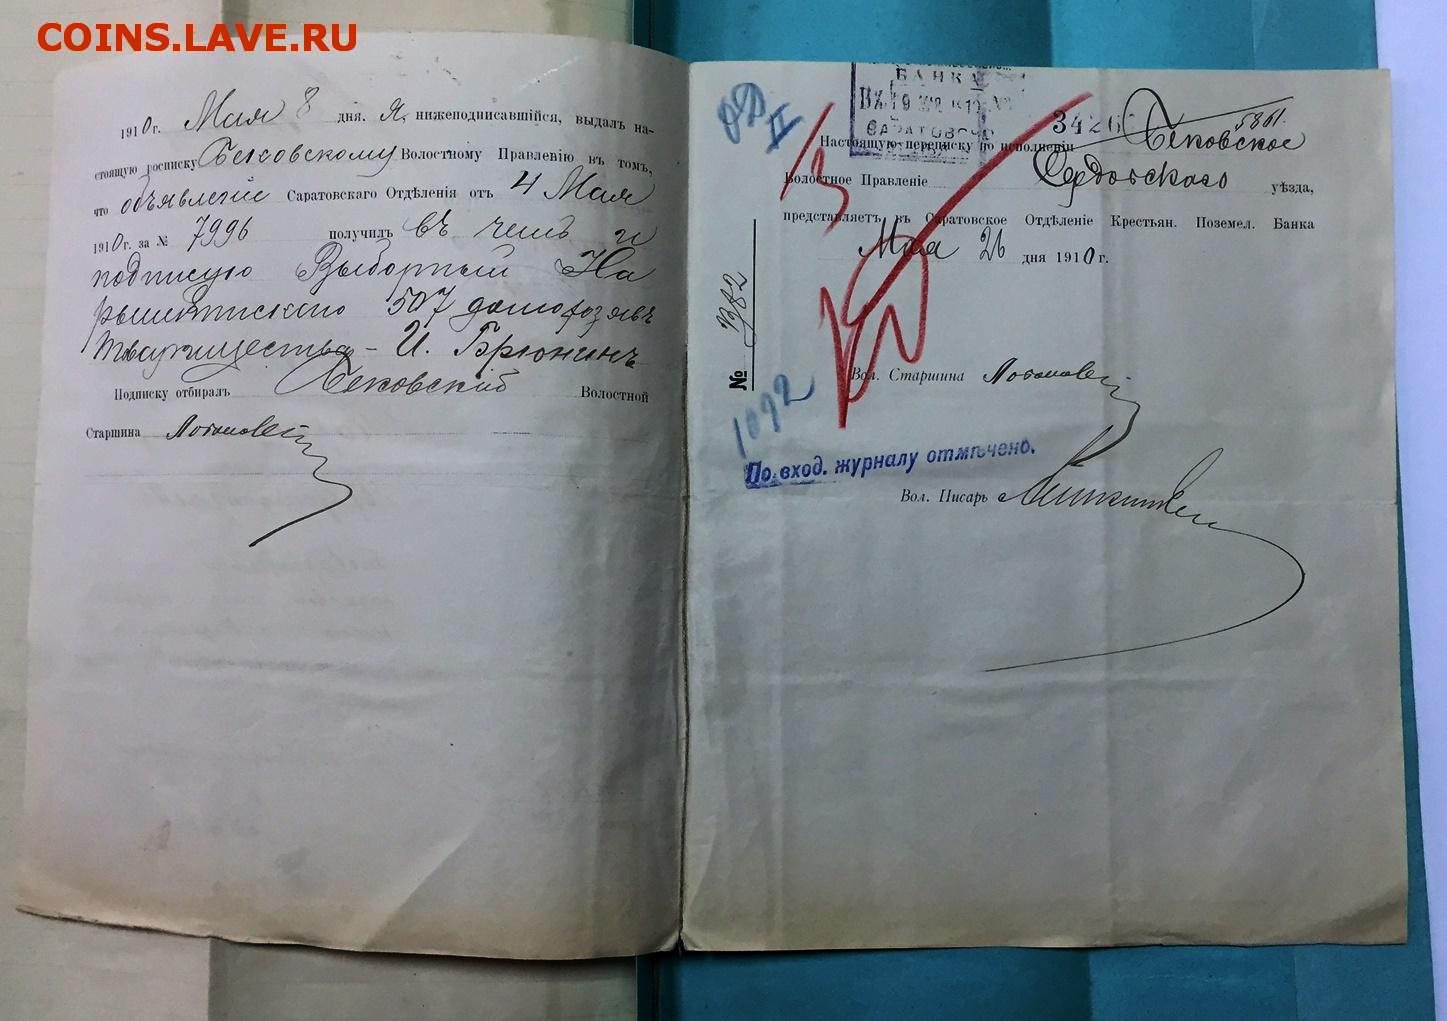 COINS.LAVE.RU
1910г. Мая 8 дня. Я, нижеподписавшійся, выдалъ на-
стоящую росписку Бековскому Волостному Правленію въ томъ,
что объявленіе Саратовскаго Отдѣленія отъ 4 Мая
1910г. за № 7996 получилъ въ чемъ и
подписуюсь Выборный На
рышкинскаго 507 домохозяевъ
товарищества - И. Брюнинъ
Подписку отбиралъ Бековский Волостной
Старшина
БАНКА
ВХ. 19
САРАТОВСКО
3426
5861.
II
Настоящую переписку по исполненіи Бековское
Волостное Правленіе Сердобскаго уѣзда,
представляетъ въ Саратовское Отдѣленіе Крестьян. Поземел. Банка
Мая 26 дня 1910г.
№
1092
Вол. Старшина
По вход. журналу отмѣчено.
Вол. Писарь